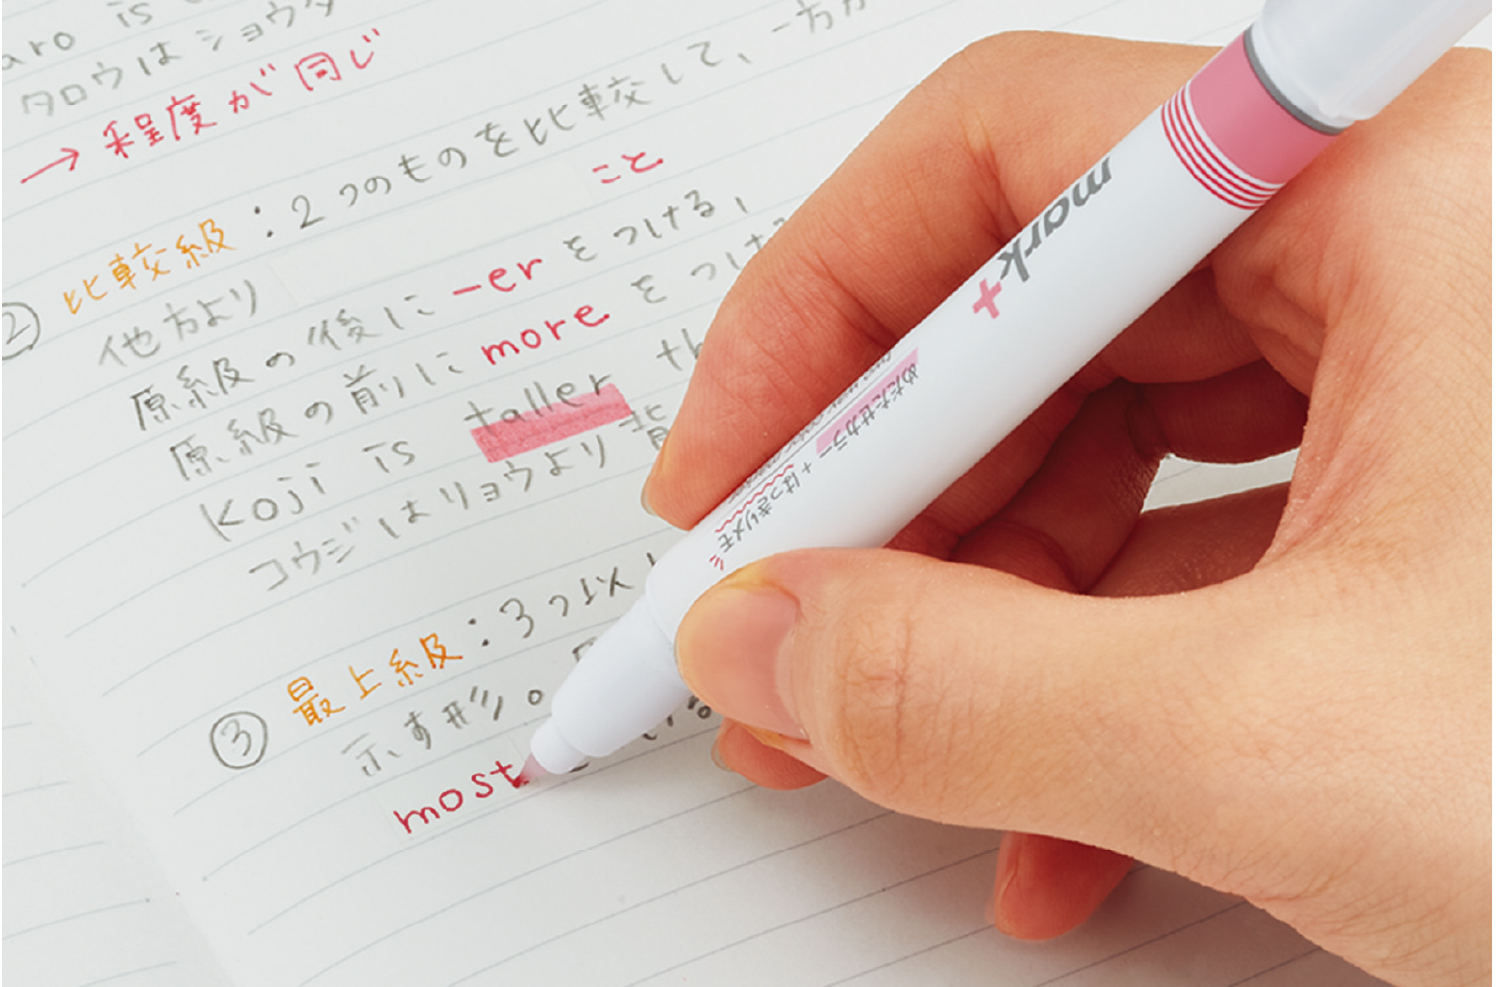 aro is
タロウは ショウタ
→ 程度が同じ
② 比較級：2つのものを比較して、一方が
他方より こと
原級の後に -er をつける,
原級の前に more をつける
Koji is taller th
コウジはリョウより背
③ 最上級：3つ以上
示す形。
most
mark+
めだたせカラー + はっきりメモ